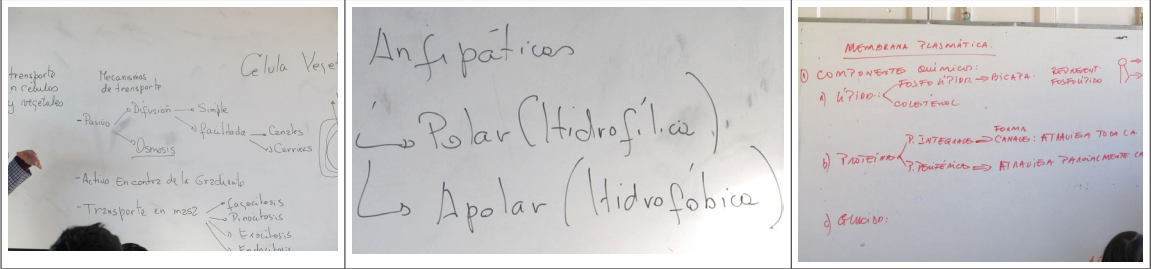 Célula Vege
transporte
n celulas
y vegetales
Mecanismos
de transporte
- Pasivo
Difusión
Simple
facilitada
Canales
Carriers
Osmosis
- Activo En contra de la Gradiente
- Transporte en masa
fagocitosis
Pinocitosis
Exocitosis
Endocitosis
Anfipáticos
Polar (Hidrofílica)
Apolar (Hidrofóbica)
MEMBRANA PLASMÁTICA.
COMPONENTES QUÍMICOS:
a) LÍPIDO:
FOSFOLÍPIDO → BICAPA.
COLESTEROL
REPRESENT.
FOSFOLÍPIDO
b) PROTEINA
P. INTEGRALES
FORMA
CANALES: ATRAVIESA TODA LA
P. PERIFÉRICA ⇒ ATRAVIESA PARCIALMENTE LA
c) GLUCIDO: